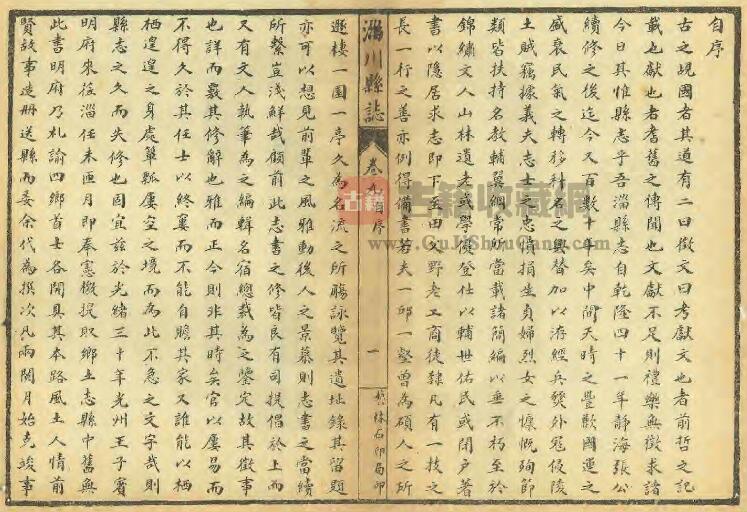 自序
古之覘國者其道有二曰徵文曰考獻文也者前哲之記
載也獻也者耆舊之傳聞也文獻不足則禮樂無徵求諸
今日其惟縣志乎吾淄縣志自乾隆四十一年靜海張公
續修之後迄今又百數十年矣中間天時之豐歉國運之
盛衰民氣之轉移科名之興替加以洊經兵燹外寇侵陵
土賊竊據義夫志士之忠憤捐生貞婦烈女之慷慨殉節
類皆扶持名教輔翼綱常所當載諸簡編以垂不朽至於
錦繡文人山林遺老或學優登仕以輔世佑民或閉戶著
書以隱居求志即下至田父野老工商徒隸凡有一技之
長一行之善亦例得備書若夫一邱一壑曾為碩人之所
淄川縣誌
卷九 自序
一
林石印局印
遯棲一園一序久為名流之所觴詠覽其遺址錄其留題
亦可以想見前輩之風雅動後人之景慕則志書之當續
所繫豈淺鮮哉顧前此志書之修皆良有司提倡於上而
又有文人執筆為之編輯名宿總裁為之鑒定故其徵事
也詳而覈其修辭也雅而正今則非其時矣官以屢易而
不得久於其任士以終窶而不能自贍其家又誰能以栖
栖遑遑之身處簞瓢屢空之境而為此不急之文字哉則
縣志之久而失修也固宜茲於光緒三十年光州王子賓
明府來蒞淄任未匝月即奉憲檄提取鄉土志縣中舊無
此書明府乃札諭四鄉首士各開具其本路風土人情前
賢故事造冊送縣而委余代為撰次凡兩閱月始克竣事
古籍收藏網
www.GuJiShouCang.com